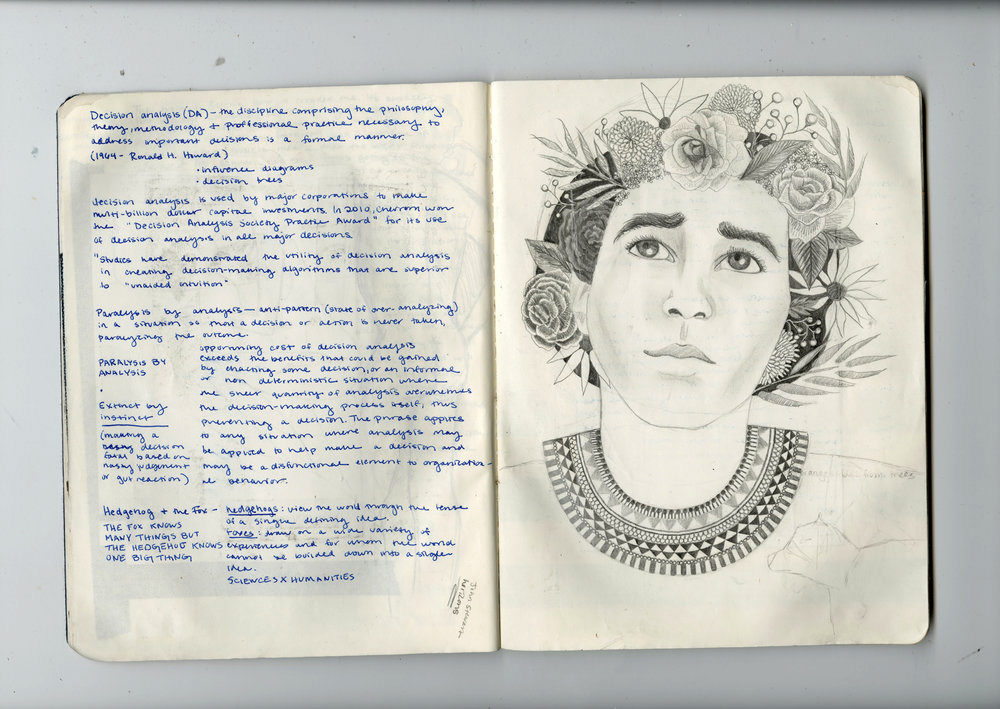 Decision analysis (DA) – the discipline comprising the philosophy,
theory, methodology + proffessional practice necessary to
address important decisions is a formal manner.
(1964 – Ronald H. Howard)
• influence diagrams
• decision trees
decision analysis is used by major corporations to make
multi-billion dollar capital investments. In 2010, chevron won
the "Decision Analysis Society Practice Award" for its use
of decision analysis in all major decisions
"Studies have demonstrated the utility of decision analysis
in creating decision-making algorithms that are superior
to "unaided intuition"
Paralysis by analysis – anti-pattern (state of over-analyzing)
in a situation so that a decision or action is never taken,
paralyzing the outcome.
PARALYSIS BY
ANALYSIS
opportunity cost of decision analysis
exceeds the benefits that could be gained
by enacting some decision, or an informal
or non deterministic situation where
the sheer quantity of analysis overwhelms
the decision-making process itself, thus
preventing a decision. The phrase applies
to any situation where analysis may
be applied to help make a decision and
may be a disfunctional element to organization-
al behavior.
Extinct by
instinct
(making a
decision
based on
hasty judgement
or gut reaction)
Hedgehog + the Fox –
THE FOX KNOWS
MANY THINGS BUT
THE HEDGEHOG KNOWS
ONE BIG THING
hedgehogs: view the world through the lense
of a single defining idea.
foxes: draw on a wide variety of
experiences and for whom the world
cannot be boiled down into a single
idea.
SCIENCES X HUMANITIES
John Stewart
from trees